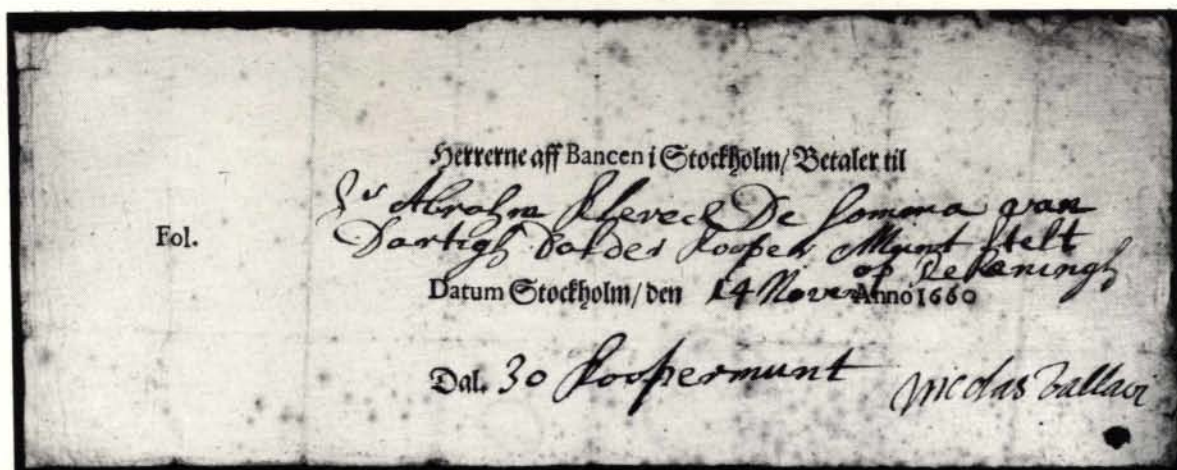 Herrerne aff Bancen i Stockholm/ Betaler til
Sr Abrahm De Somma van
Fol.
Dartigh Daldes Kooper Munt Stelt
op Rekeningh
Datum Stockholm/ den 14 Novem Anno 1660
Dal. 30 Koopermunt
Nicolas Vallari